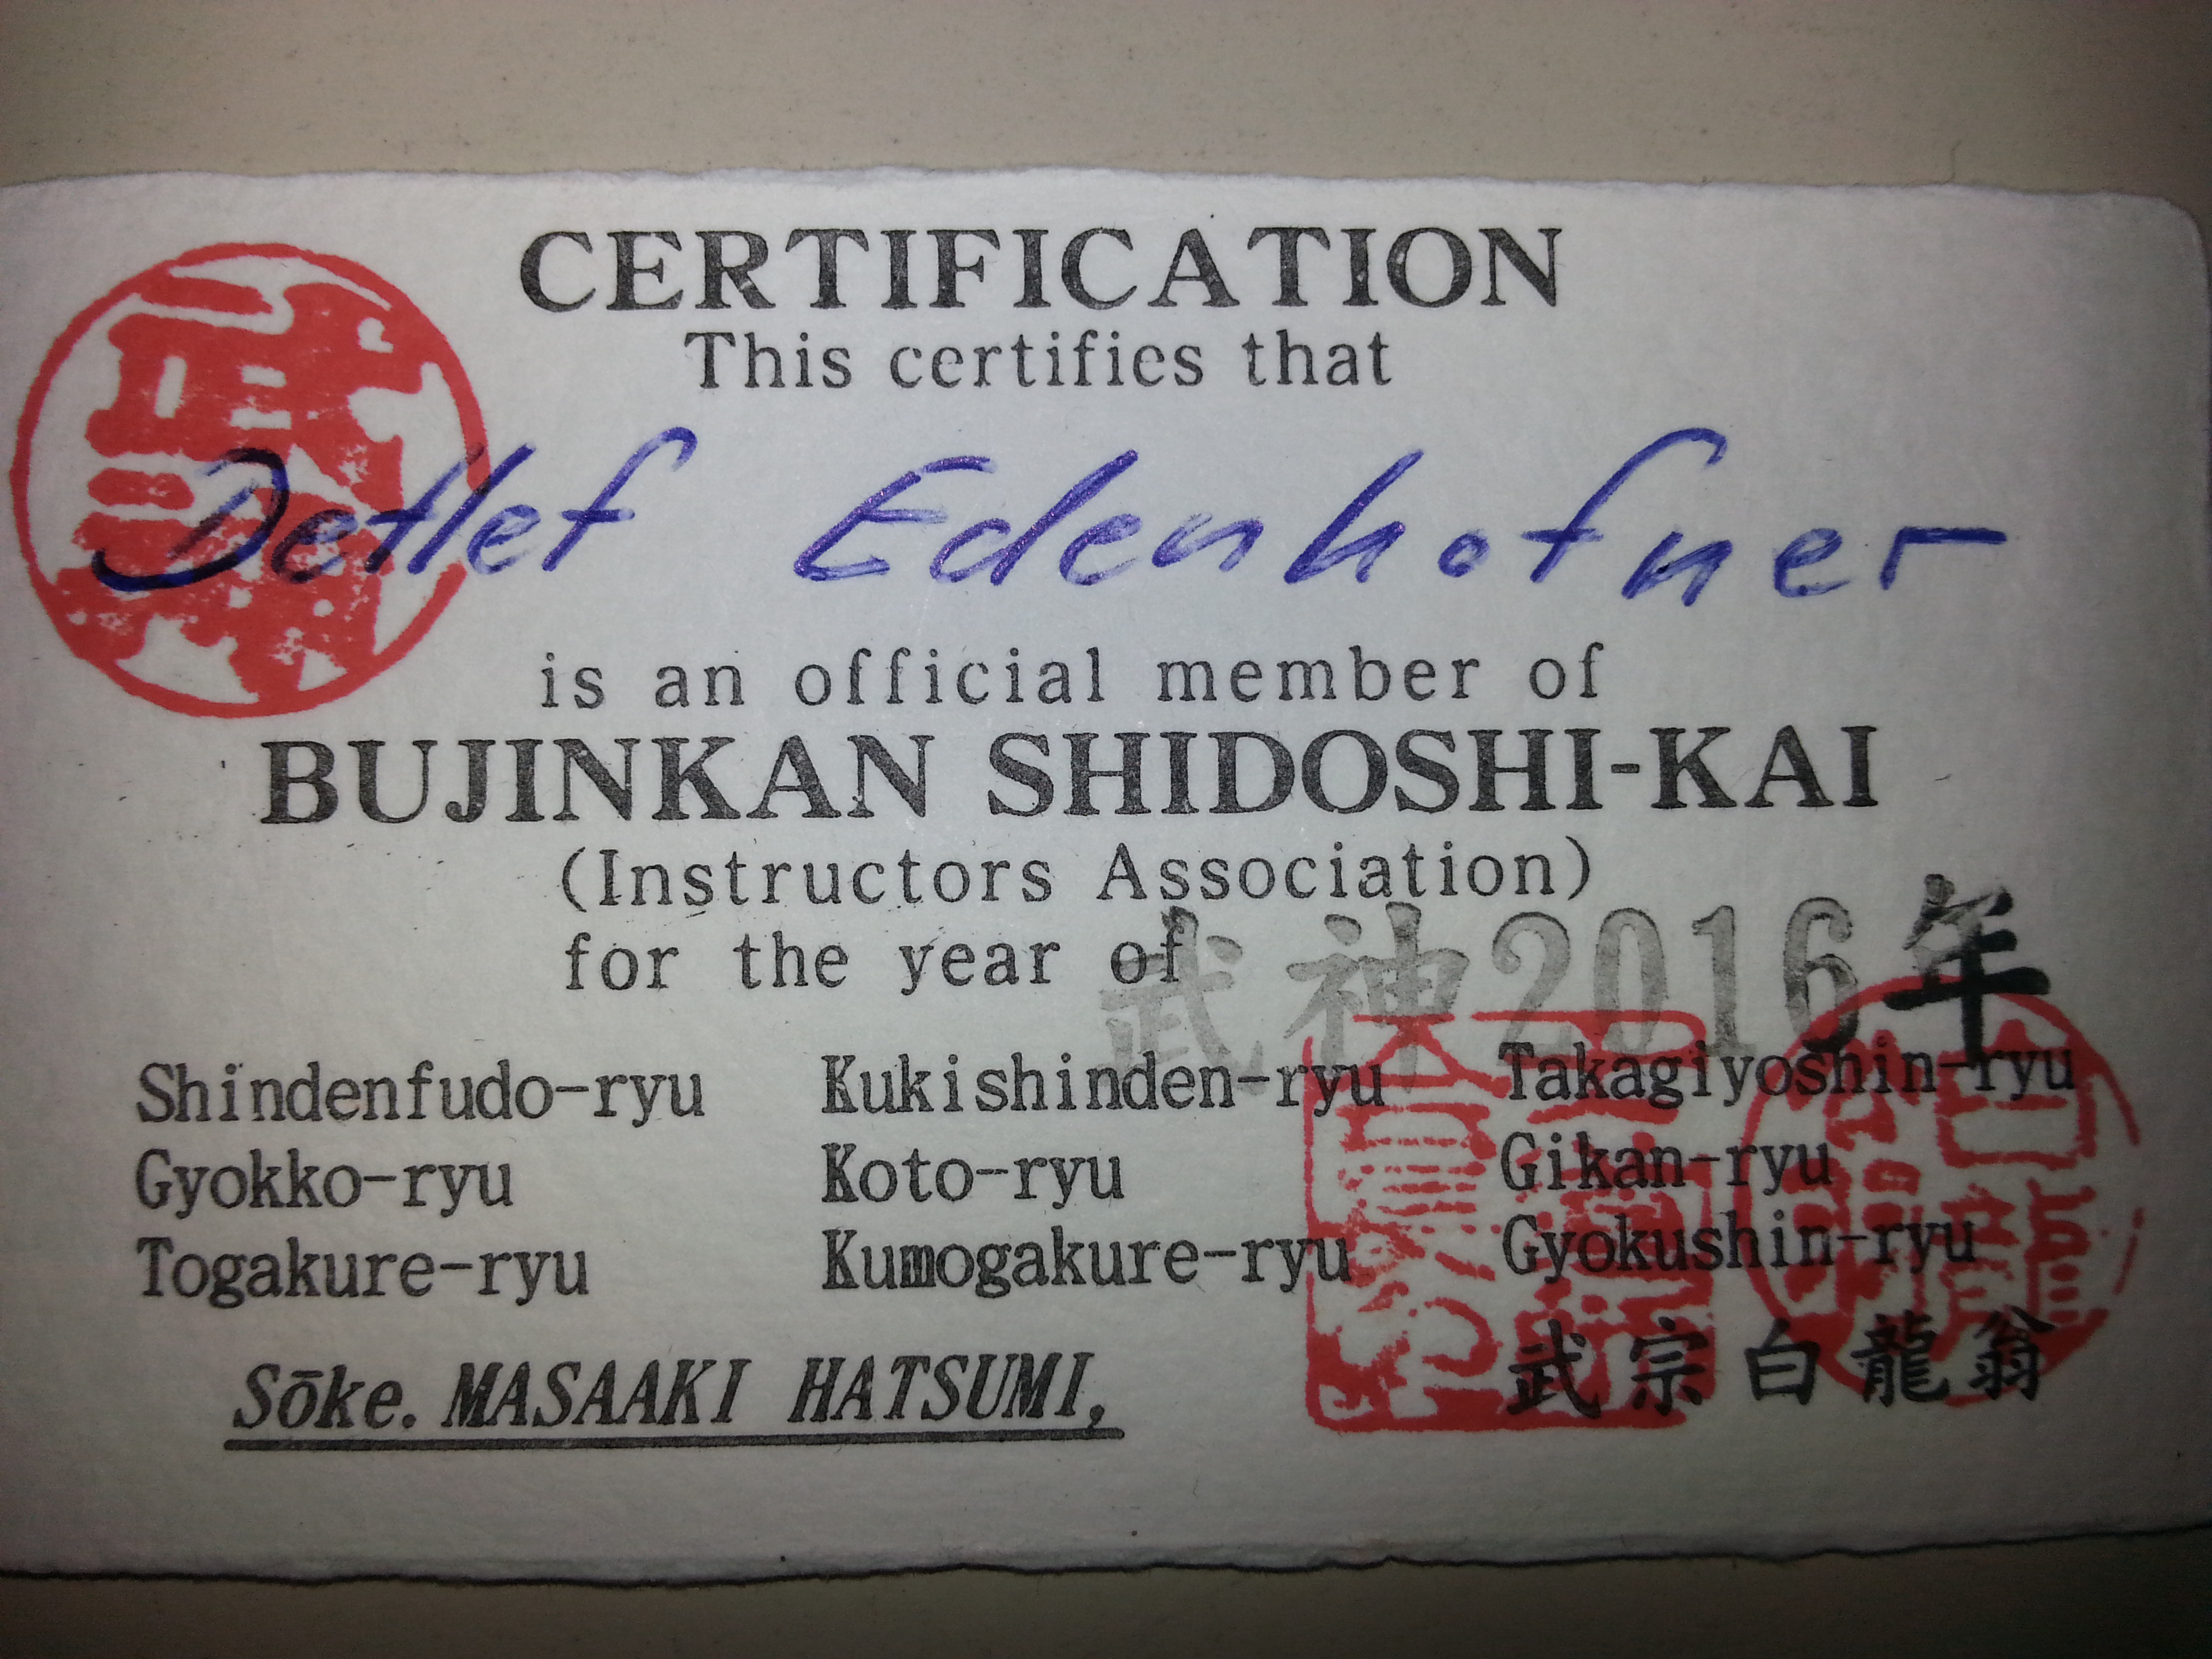 CERTIFICATION
This certifies that
Detlef Edenhofner
is an official member of
BUJINKAN SHIDOSHI-KAI
(Instructors Association)
for the year of 武神2016年
Shindenfudo-ryu Kukishinden-ryu Takagiyoshin-ryu
Gyokko-ryu Koto-ryu Gikan-ryu
Togakure-ryu Kumogakure-ryu Gyokushin-ryu
Sōke. MASAAKI HATSUMI,
武宗白龍翁